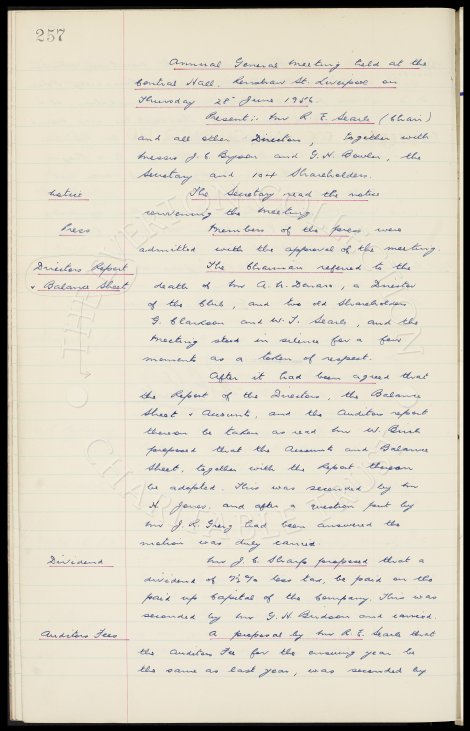 257
Annual General Meeting held at the
Central Hall, Renshaw St. Liverpool on
Thursday 28th June 1956.
Present:- Mr R. E. Searle (Chair)
and all other Directors, together with
Messrs J. E. Bryson and G. H. Bowler, the
Secretary and 104 Shareholders.
Notice
The Secretary read the notice
convening the meeting
Press
Members of the press were
admitted with the approval of the meeting.
Directors Report
& Balance Sheet
The Chairman referred to the
death of Mr A. N. Denaro, a Director
of the Club, and two old Shareholders
G. Clarkson and W. J. Searle, and the
meeting stood in silence for a few
moments as a token of respect.
After it had been agreed that
the Report of the Directors, the Balance
Sheet & Accounts, and the Auditors report
thereon be taken as read Mr W.
proposed that the Accounts and Balance
Sheet, together with the Report thereon
be adopted. This was seconded by Mr
H. Jones, and after a question put by
Mr J. K. Greig had been answered the
motion was duly carried.
Dividend
Mr J. C. Sharp proposed that a
dividend of 7½% less tax, be paid on the
paid up Capital of the Company. This was
seconded by Mr G. H. and carried.
Auditors Fees
A proposal by Mr R. E. Searle that
the Auditors Fee for the ensuing year be
the same as last year, was seconded by